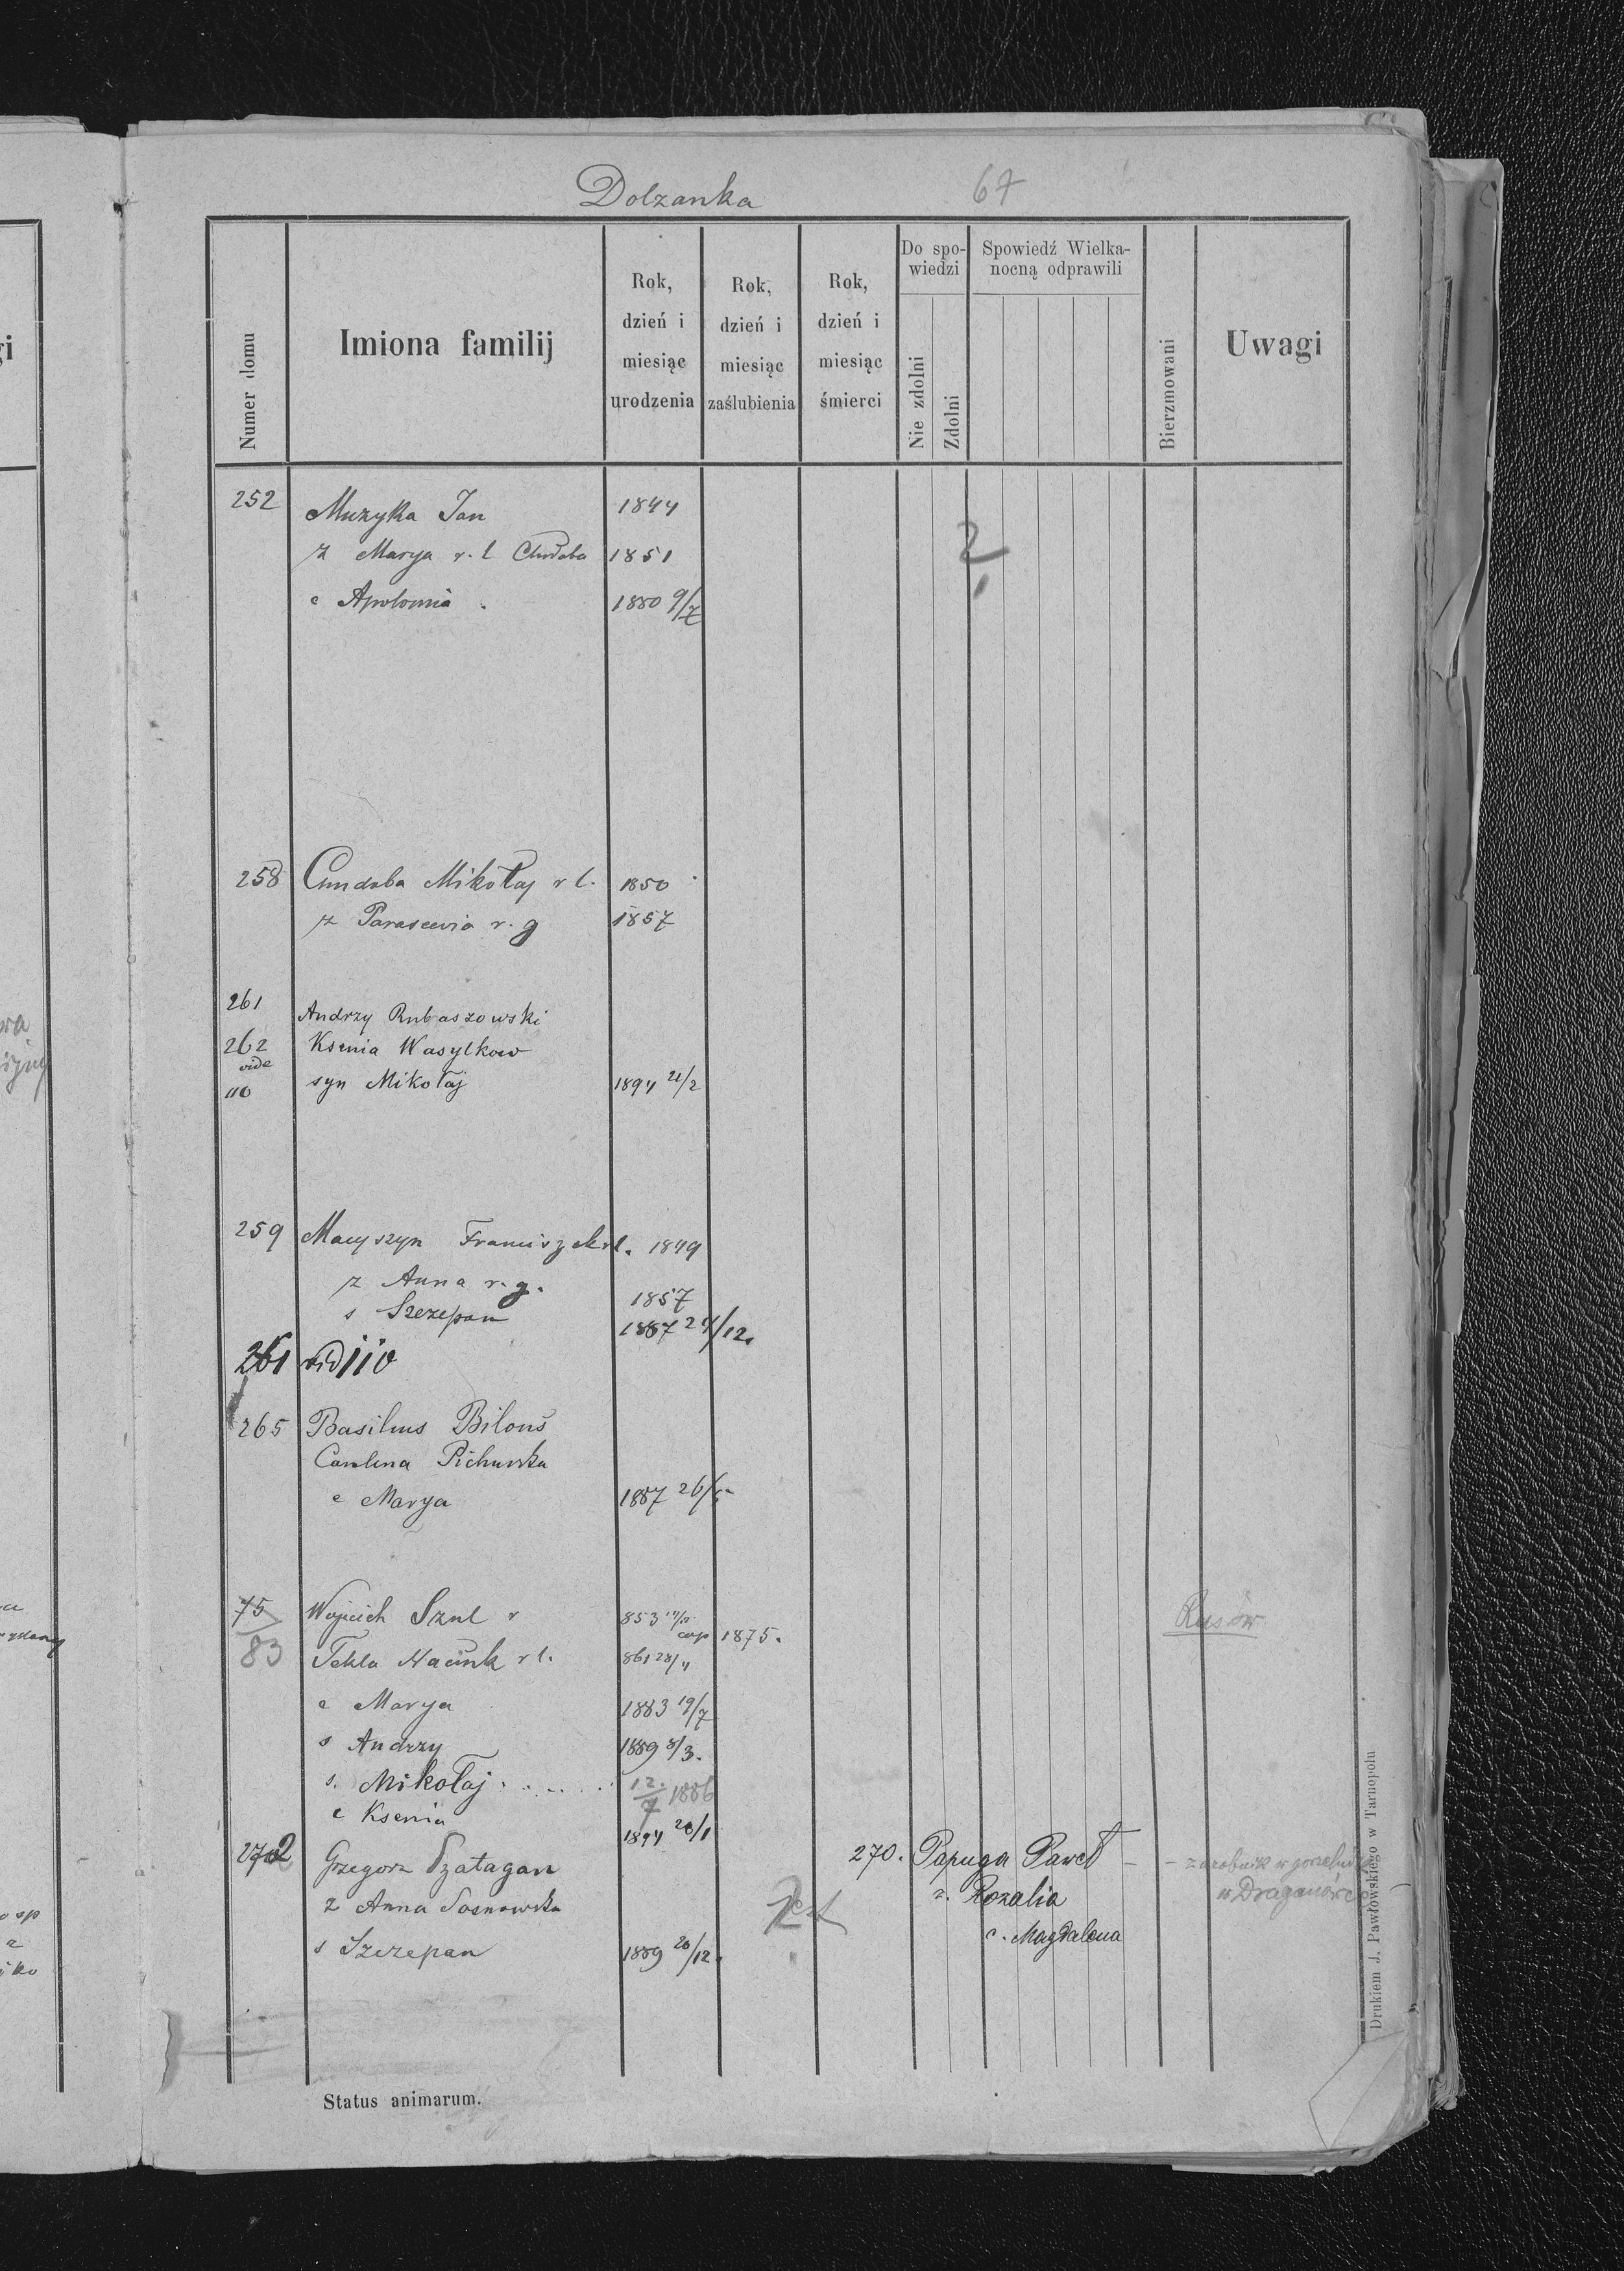 Dolzanka 67
Numer domu
Imiona familij
Rok, dzień i miesiąc urodzenia
Rok, dzień i miesiąc zaślubienia
Rok, dzień i miesiąc śmierci
Do spo-
wiedzi
Nie zdolni
Zdolni
Spowiedź Wielka-
nocną odprawili
Bierzmowani
Uwagi
252 Muzyka Jan 1844
ż Marya r. l 1851 2
c Apolonia 1880 9/7
258 Mikołaj r l. 1850
ż Parascevia r. g 1857
261 Andrzy Rubaszowski
262 Ksenia Wasylkow
vide
110 syn Mikołaj 1894 21/2
259 Macyszyn Franciszek r l. 1849
ż Anna r. g. 1857
s Szczepan 1887 24/12
261 vid 110
265 Basilius Bilous
Carolina
c Marya 1887 26/5
75 Wojcich Szul r 853 cop 1875. Rusów
83 Tekla r l. 861 28/4
c Marya 1883 19/7
s Andrzy 1889 8/3.
s. Mikołaj 12/7 1886
c Ksenia 1894 28/1
2702 Grzegorz Szatagan
ż Anna Sosnowska
s Szczepan 1889 20/12.
270. Papuga Paweł - zarobnik w gorzelni
ż. Rozalia w Draganówce
c. Magdalena
Status animarum.
Drukiem J. Pawłowskiego w Tarnopolu